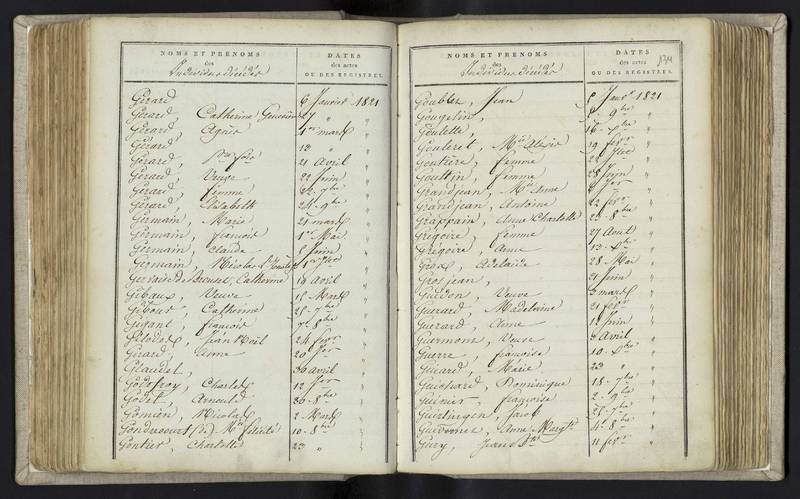 NOMS ET PRÉNOMS
des
Individus décédés
DATES
des actes
OU DES REGISTRES.
Gérard 6 Janvier 1821
Gérard, Catherine 27 " "
Gérard, Agnès 1er mars "
Gérard 13 " "
Gérard, 21 Avril "
Gérard, Veuve 22 Juin "
Gérard, femme 22. 7bre "
Gérard, Elisabeth 24. 9bre "
Germain, Marie 21 mars "
Germain, françois 1er Mai "
Germain, Claude Juin "
Germain, Nicolas "
Gervaise de Brouse, Catherine 19 Avril "
Gibaux, Veuve 15 Mars "
Gibout, Catherine 25. 7bre "
Gigant, françois 8bre "
Gilodes, Jean Noël 24 fevr "
Girard, Anne 20 Jer "
Glaudel, 30 Avril "
Godefroy, Charles 12 Jer "
Godet, Arnould 30. 8bre "
Gomien, Nicolas 2 Mars "
Gondrecourt (de) Mie félicité 10. 8bre "
Gontier, Charlotte 23 " "
NOMS ET PRÉNOMS
des
Individus décédés
DATES
des actes
OU DES REGISTRES.
134
Goublet, Jean Janvr 1821
Gougelin, 9bre "
Goulette, 16. "
Gouleret, Me Aloÿse 19 fevr "
Goutière, femme "
Gouttin, femme 28 Juin "
Grandjean, Me Anne Jer "
Grandjean, Antoine 22 fevr "
Grappain, Anne Charlotte 22. 8bre "
Grégoire, femme 27 Août "
Grégoire, Anne 12. "
Gros, Adélaïde 28 Mai "
Grosjean, 21 Juin "
Guédon, Veuve 3 mars "
Guerard, Madeleine 21 fevr "
Guerard, Anne 12 Juin "
Guermont, Veuve Avril "
Guerre, françoise 10. "
Gueard, Marie 23 " "
Guichard, Dominique 18. 7bre "
Guinier, françoise 2. 9bre "
Guirlingen, Jacob 25. 7bre "
Guivonnes, Anne Margte 4. 8bre "
Gury, Jean Bte 11 fevr "